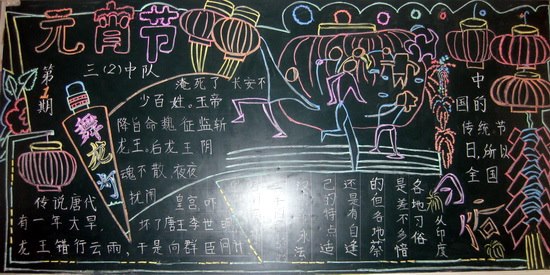 元宵节
第1期
三(2)中队
舞龙
淹死了长安不
少百姓。玉帝
降旨命魏征监斩
龙王。后龙王阴
魂不散、夜夜
扰闹
传说唐代
有一年大旱,
龙王错行云雨,
皇宫,吓
坏了唐王李世
于是向群臣问计
办法
己的特点造
还是有自逢
的但各地蔡
是差不多惜
各地习俗
中
国的
传统节
日,所以
全国